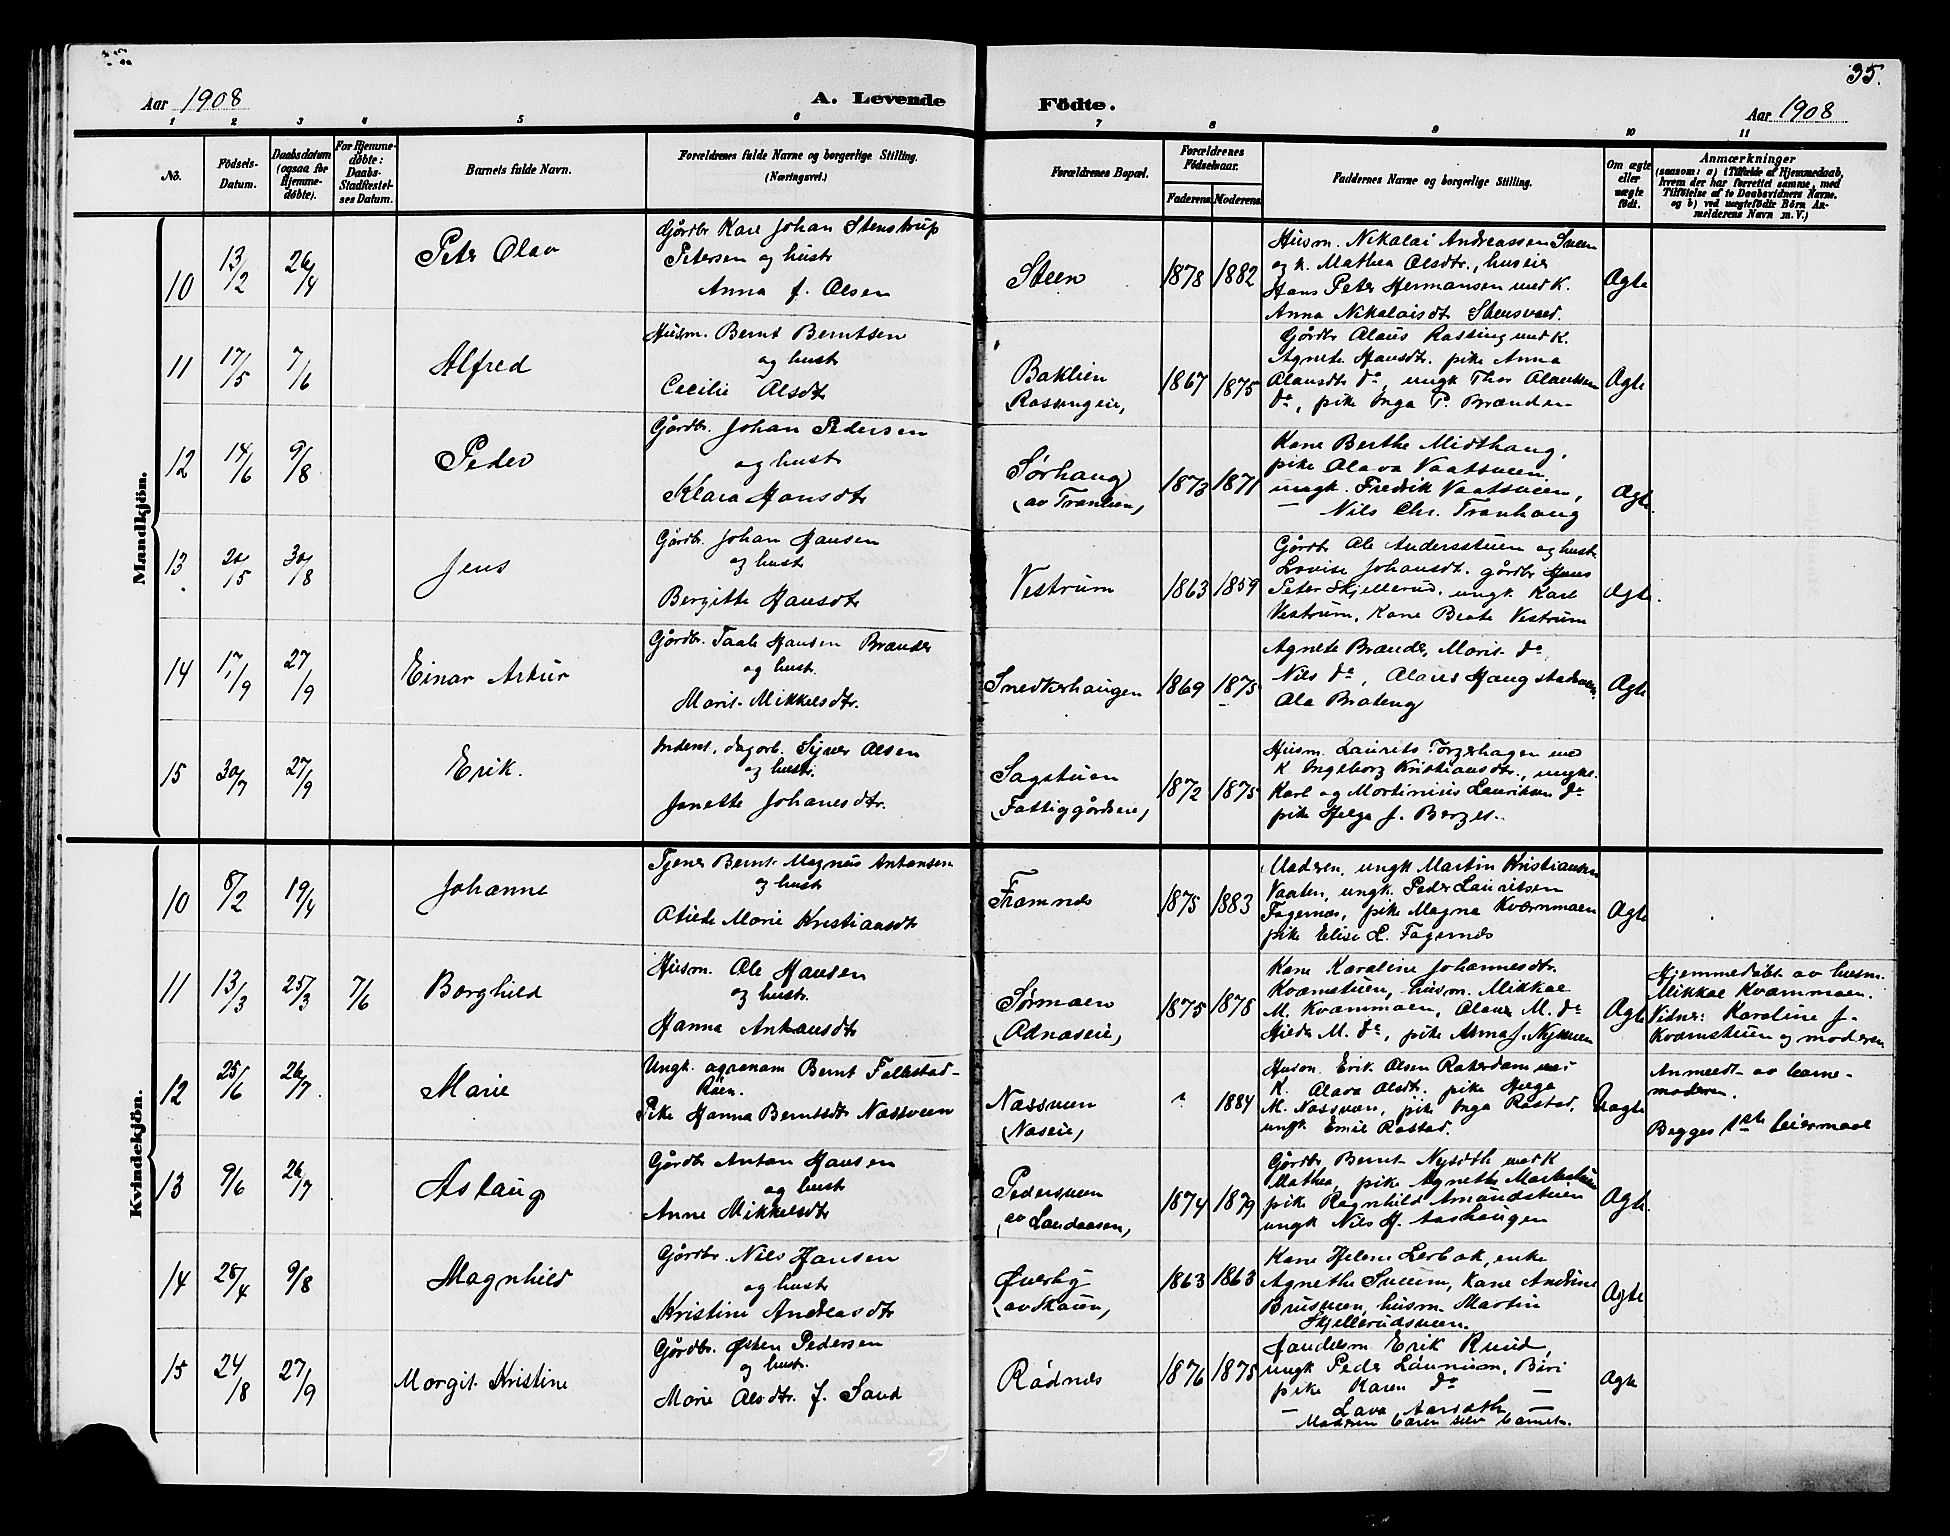 35.
Aar 1908
A. Levende Födte.
Aar 1908
1 2 3 4 5 6 7 8 9 10 11
No.
Födsels-Datum.
Daabsdatum (ogsaa for Hjemmedøbte).
For Hjemmedøbte: Daabs-Stadfæstelses Datum.
Barnets fulde Navn.
Forældrenes fulde Navne og borgerlige Stilling. (Næringsvei.)
Forældrenes Bopæl.
Forældrenes Födselsaar.
Faderens. Moderens.
Faddernes Navne og borgerlige Stilling.
Om ægte eller uægte födt.
Anmærkninger
(saasom: a) i Tilfælde af Hjemmedaab, hvem der har forrettet samme, med Tilföielse af to Daabsvidners Navne, og b) ved uægtefödte Börn Anmelderens Navn m. V.)
Mandkjön.
10 13/2 26/4 Peter Olav
Gårdbr Karl Johan Stenstrup
Petersen og hustr
Anna J. Olsen
Steen 1878 1882
Husm. Nikolai Andreassen Sveen
og k. Mathea Olsdtr., huseier
Hans Peter Hermansen med K.
Anna Nikolaisdt Stensveed.
Ægte
11 17/5 7/6 Alfred
Husm. Bernt Berntsen
og hust
Cecilie Olsdtr
Baklien
(Rossengeie,
1867 1875
Gårdbr Olaus Rossing med K.
Agnete Hansdtr. pike Anna
Olausdtr do, ungk Thor Olaussen
do, pike Inga P. Brænden
Ægte
12 14/6 9/8 Peder
Gårdbr. Johan Pedersen
og hust
Klara Hansdtr
Sørhaug
(av Tranlien,
1873 1871
Kone Berthe Midthaug,
pike Olava Vaatsveen
ungk. Fredrik Vaatsveen,
— Nils Chr. Tranhaug
Ægte.
13 20/5 30/8 Jens
Gårdbr. Johan Hansen
og hust
Bergitte Hansdtr
Vestrum 1863 1859
Gårdbr Ole Andersstuen og hustr
Lovise Johansdt. gårdbr Hans
Peter Skjellerud. ungk Karl
Vestrum, Kone Beate Vestrum
Ægte.
14 17/9 27/9 Einar Artur
Gårdbr. Taale Hansen Brænder
og hust.
Marit Mikkelsdtr.
Snedkerhaugen 1869 1875
Agnete Brænde, Marit do
Nils do, Olaus Haugstadsveen
Ola Brateng
Ægte
15 30/7 27/9 Erik.
Indent. dagarb. Syver Olsen
og hustr.
Janette Johanesdtr.
Sagstuen
(Fattiggårdseie,
1872 1875
Husm. Laurits Torgerhagen med
K Ingeborg Kristiansdtr., ungke.
Karl og Mortinius Lauritsen do
pike Helga J. Berget.
Kvindekjön.
10 8/2 19/4 Johanne
Tjener Bernt Magnus Antonsen
og hustr
Otilde Marie Kristiansdtr
Framnes 1875 1883
Moderen, ungk Martin Kristiansen
Vaaten, ungk. Peder Lauritsen
Fagernæs, pike Magna Kværnmoen
pike Elise L. Fagernæs
Ægte
11 13/3 25/3 7/6 Borghild
Husm. Ole Hansen
og hustr.
Hanna Antonsdtr
Sørmoen
(Odnæseie,
1875 1878
Kone Karoline Johannesdtr.
Kvæmstuen, husm. Mikkel
M. Kvammoen, Olaus M. do
Hilda M. do, pike Anna J. Nysveen
Ægte
Hjemmedøbt av husm.
Mikkal Kvæmmoen.
Vidner: Karoline J.
Kvæmstuen og moderen
12 25/6 26/7 Marie
Ungk. agronom Bernt Follestad-
Röen.
Pike Hanna Berntsdtr Næssveen
Næssveen
(Næseie,
? 1884
Husm. Erik Olsen Roterdam med
K. Olava Olsdt. pike Helga
M. Næssveen, pike Inga Rostad.
ungk Emil Rostad.
Uægte
Anmeldt av barne-
moderen.
Begges 1ste leiermaal
13 9/6 26/7 Aslaug
Gårdbr Anton Hansen
og hust
Anne Mikkelsdtr
Pedersveen
(av Landaasen,
1874 1879
Gårdbr Bernt Nysæth med K
Mathea, pike Agnethe
pike Ragnhild Amundstuen
ungk Nils H. Aashaugen
Ægte.
14 28/4 9/8 Magnhild
Gårdbr. Nils Hansen
og hust
Kristine Andreasdtr
Øverby
(av Skøien,
1863 1863
Kone Helene Lerbak, enke
Agnethe Sveum, Kone Andrine
Brusveen, husm. Martin
Skjellerudsveen.
Ægte
15 24/8 27/9 Margit Kristine
Gårdbr. Østen Pedersen
og hustr.
Marie Olsdtr. f. Sand
Rødnæs 1876 1875
Handelsm. Erik Ruud,
ungk Peder Launium, Biri
pike Karen do —
— Lava Aarsæth —
Moderen baren selv barnet.
Ægte